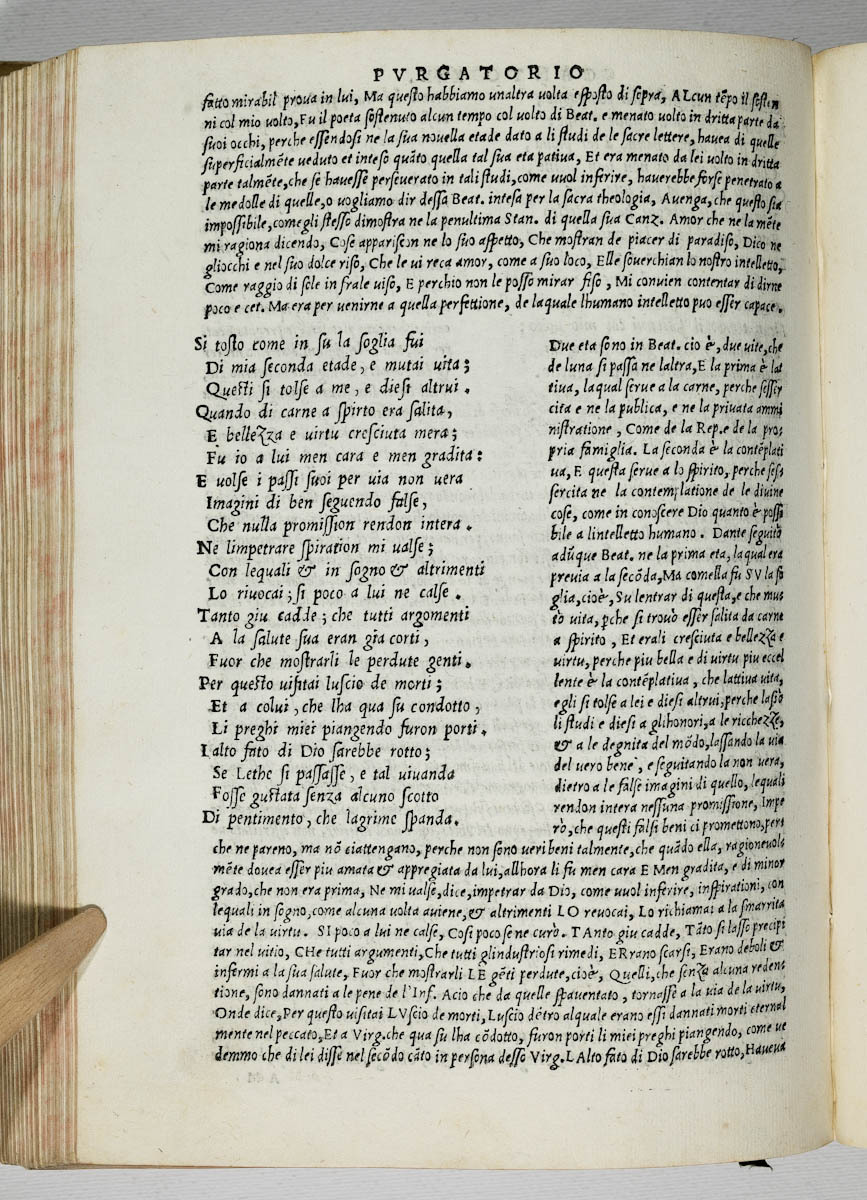 PVRGATORIO
fatto mirabil prova in lui, Ma questo habbiamo unaltra volta esposto di sopra, ALcun tẽpo il sosten
ni col mio volto, Fu il poeta sostenuto alcun tempo col volto di Beat. e menato volto in dritta parte da
suoi occhi, perche essendosi ne la sua novella etade dato a li studi de le sacre lettere, havea di quelle
superficialmẽte veduto et inteso quãto quella tal sua eta pativa, Et era menato da lei volto in dritta
parte talmẽte, che se havesse perseverato in tali studi, come vuol inferire, haverebbe forse penetrato a
le medolle di quelle, o vogliamo dir dessa Beat. intesa per la sacra theologia, Avenga, che questo sia
impossibile, come gli stesso dimostra ne la penultima Stan. di quella sua Canz. Amor che ne la mẽte
mi ragiona dicendo, Cose appariscon ne lo suo aspetto, Che mostran de piacer di paradiso, Dico ne
gliocchi e nel suo dolce riso, Che le ui reca amor, come a suo loco, Elle soverchian lo nostro intelletto,
Come raggio di sole in frale viso, E perchio non le posso mirar fiso, Mi convien contentar di dirne
poco e cet. Ma era per uenirne a quella perfettione, de laquale lhumano intelletto puo esser capace.
Si tosto come in su la soglia fui
Di mia seconda etade, e mutai vita;
Questi si tolse a me, e diesi altrui.
Quando di carne a spirto era salita,
E bellezza e virtu cresciuta mera;
Fu io a lui men cara e men gradita:
E volse i passi suoi per via non vera
Imagini di ben seguendo false,
Che nulla promission rendon intera.
Ne limpetrare spiration mi valse;
Con lequali & in sogno & altrimenti
Lo rivocai; si poco a lui ne calse.
Tanto giu cadde; che tutti argomenti
A la salute sua eran gia corti,
Fuor che mostrarli le perdute genti.
Per questo visitai luscio de morti;
Et a colui, che lha qua su condotto,
Li preghi miei piangendo furon porti.
Lalto fato di Dio sarebbe rotto;
Se Lethe si passasse, e tal vivanda
Fosse gustata senza alcuno scotto
Di pentimento, che lagrime spanda.
Due eta sono in Beat. cio è, due vite, che
de luna si passa ne laltra, E la prima è lat
tiva, laqual serue a la carne, perche sesser
cita e ne la publica, e ne la privata ammi
nistratione, Come de la Rep. e de la pro
pria famiglia. La seconda è la contẽplati
va, E questa serue a lo spirito, perche sess
sercita ne la contemplatione de le divine
cose, come in conoscere Dio quanto è possi
bile a lintelletto humano. Dante seguitò
adũque Beat. ne la prima eta, laqual era
previa a la secõda, Ma comella fu SV la so
glia, cioè, Su lentrar di questa, e che mu
tò vita, pche si trovò esser salita da carne
a spirito, Et erali cresciuta e bellezza e
virtu, perche piu bella e di virtu piu eccel
lente è la contẽplativa, che lattiva vita,
egli si tolse a lei e diesi altrui, perche lasiò
li studi e diesi a glihonori, a le ricchezze,
& a le degnita del mõdo, lassando la via
del vero bene, e seguitando la non vera,
dietro a le false imagini di quello, lequali
rendon intera nessuna promissione, Impe
rò, che questi falsi beni ci promettono, pers
che ne pareno, ma nõ ciattengano, perche non sono veri beni talmente, che quãdo ella, ragionevol
mẽte dovea esser piu amata & appregiata da lui, allhora li fu men cara E Men gradita, e di minor
grado, che non era prima, Ne mi valse, dice, impetrar da Dio, come vuol inferire, inspirationi, con
lequali in sogno, come alcuna volta aviene, & altrimenti LO revocai, Lo richiamai a la smarrita
via de la virtu. SI poco a lui ne calse, Cosi poco se ne curò. TAnto giu cadde, Tãto si lasso precipi
tar nel vitio, CHe tutti argumenti, Che tutti glindustriosi rimedi, ERrano scarsi, Erano deboli &
infermi a la sua salute, Fuor che mostrarli LE gẽti perdute, cioè, Quelli, che senza alcuna redent
tione, sono dannati a le pene de l'Inf. Acio che da quelle spaventato, tornasse a la via de la virtu,
Onde dice, Per questo visitai LVscio de morti, Luscio dẽtro alquale erano essi dannati morti eternal
mente nel peccato, Et a Virg. che qua su lha cõdotto, furon porti li miei preghi piangendo, come ve
demmo che di lei disse nel secõdo cãto in persona desso Virg. LAlto fato di Dio sarebbe rotto, Haueua